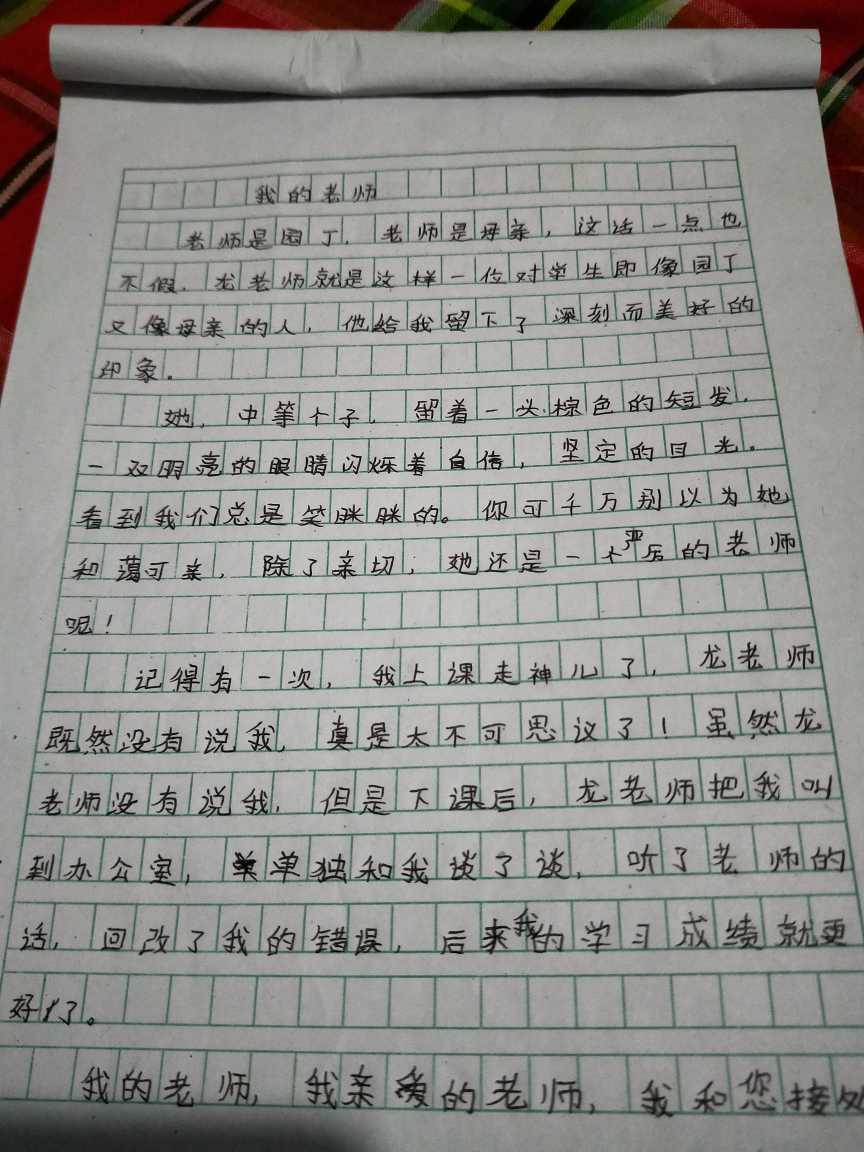 我的老师
老师是园丁，老师是母亲，这话一点也
不假．龙老师就是这样一位对学生即像园丁
又像母亲的人，他给我留下了深刻而美好的
印象。
她，中等个子，留着一头棕色的短发，
一双明亮的眼睛闪烁着自信，坚定的目光。
看到我们总是笑眯眯的。你可千万别以为她
和蔼可亲，除了亲切，她还是一个严厉的老师
呢！
记得有一次，我上课走神儿了，龙老师
既然没有说我，真是太不可思议了！虽然龙
老师没有说我，但是下课后，龙老师把我叫
到办公室，单独和我谈了谈，听了老师的
话，回改了我的错误，后来我的学习成绩就更
好了。
我的老师，我亲爱的老师，我和您接处